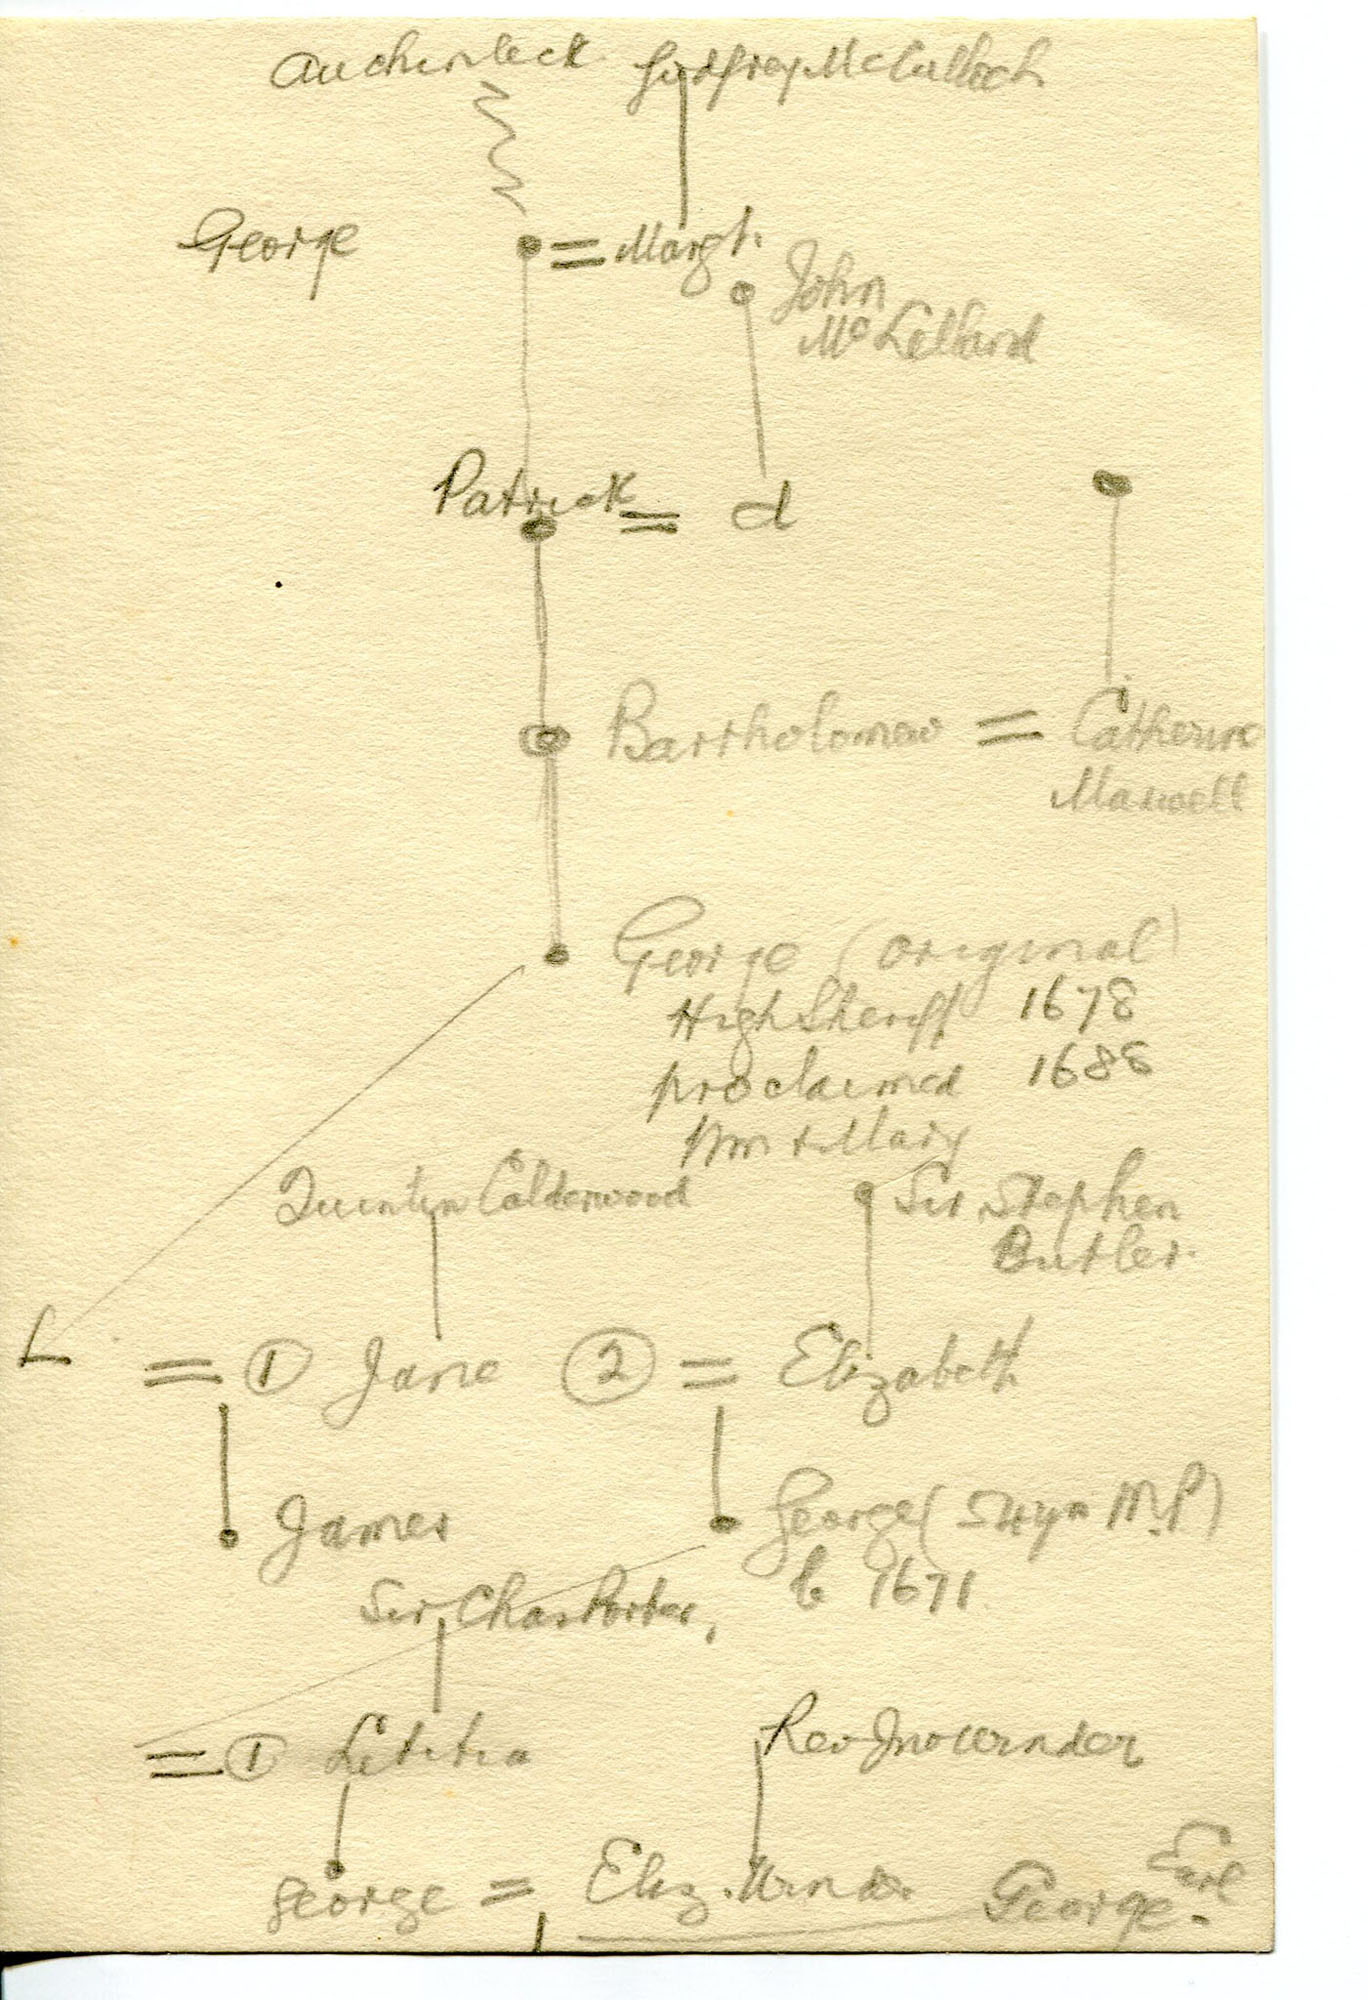 Auchenleck Godfrey McCulloch
George = Margt.
John
McLelland
Patrick = d
Bartholomew = Catherine
Maxwell
George (original)
High Sheriff 1678
proclaimed 1688
Wm + Mary
Quentin Calderwood
Sir Stephen
Butler.
L = ① Jane ② = Elizabeth
James
George ( 54 yr M.P)
b 1671
Sir Chas Porter,
= ① Letitia
Rev Jno
George = Eliz. George Earl